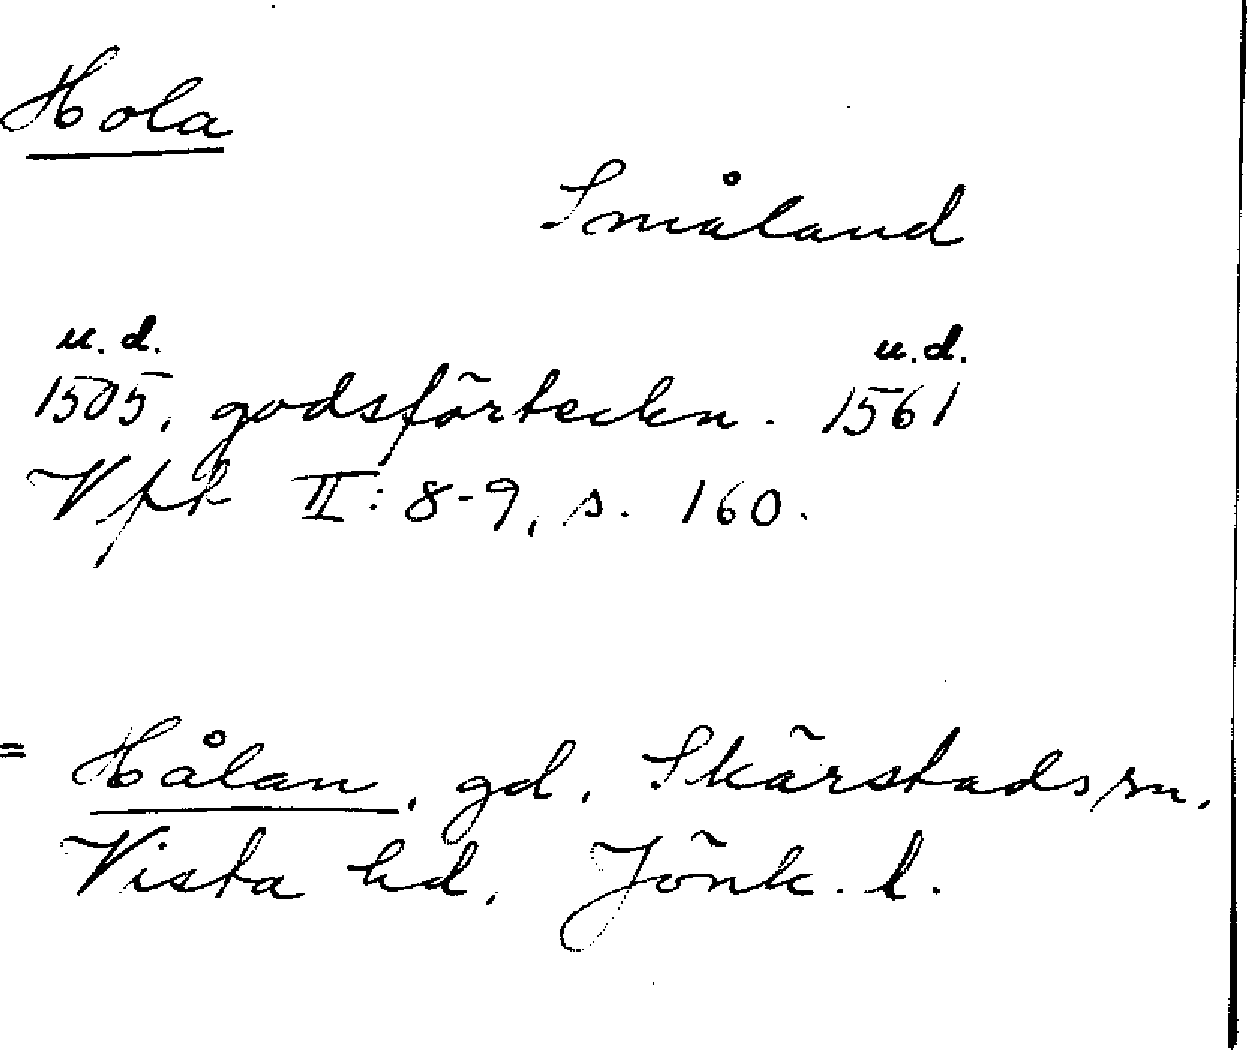 Hola
Småland
u.d. u.d.
1505, godsförteckn. 1561
Vfk II: 8-9, s. 160.
= Hålan, gd, Skärstads sn,
Vista hd, Jönk. l.